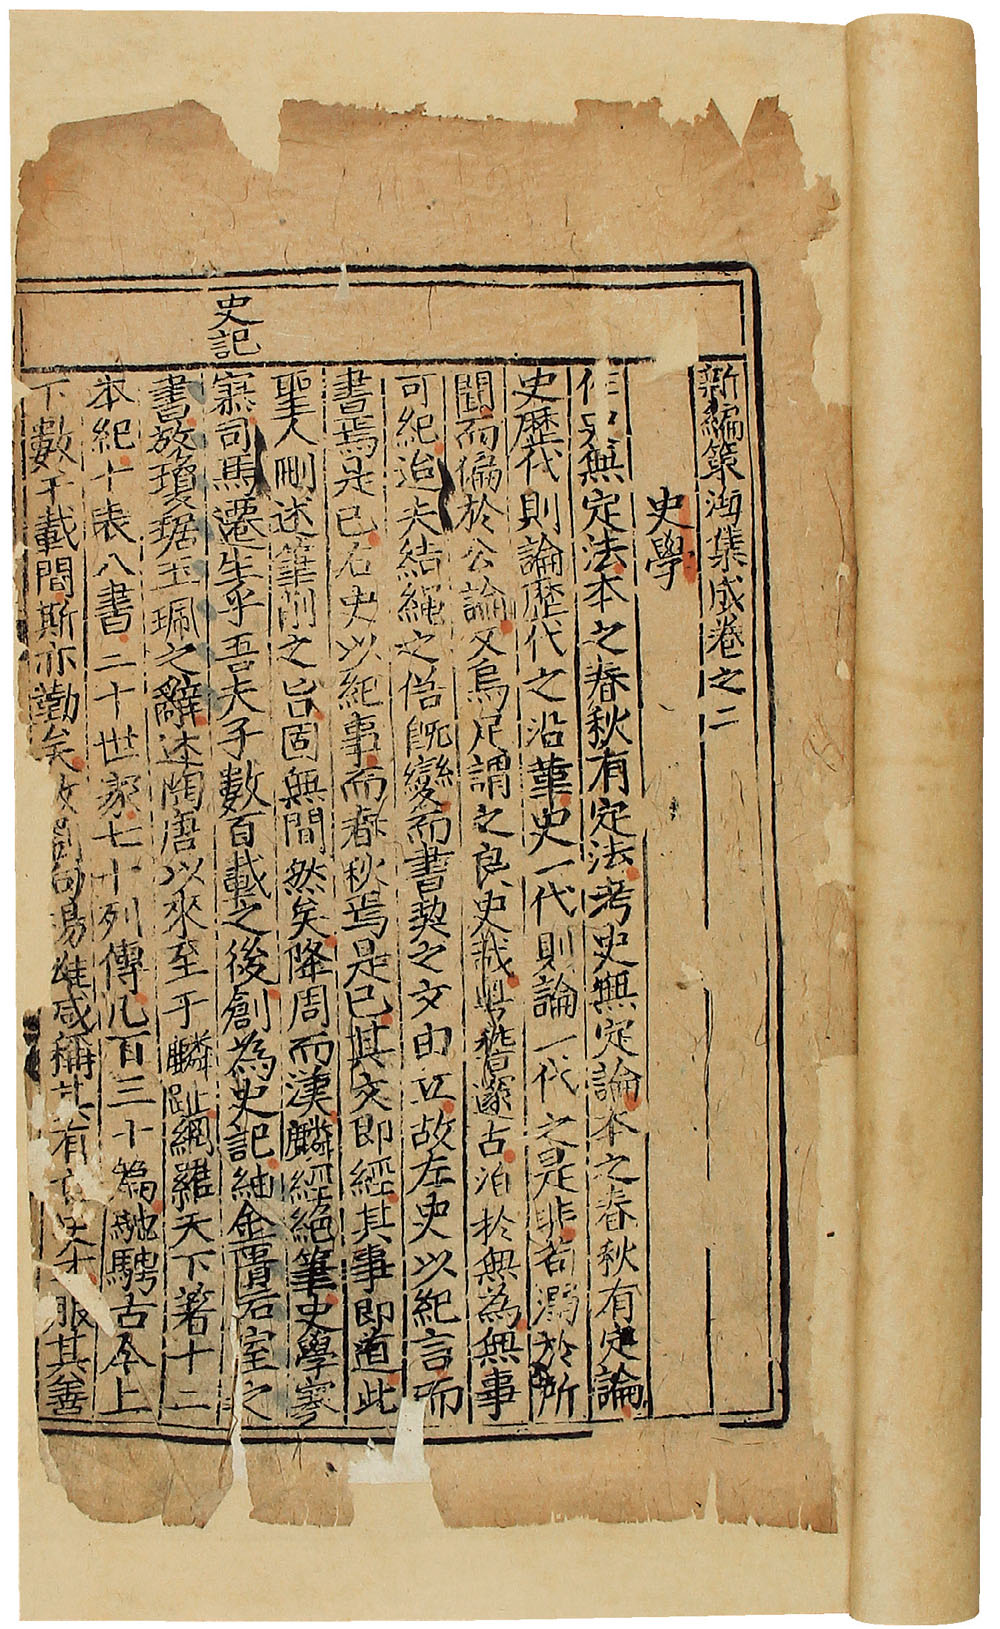 新編策海集成卷之二
史學
作史無定法本之春秋有定法考史無定論本之春秋有定論
史歷代則論歷代之沿革史一代則論一代之是非若溺於所
聞而偏於公論又烏足謂之良史哉粤稽邃古泊於無為無事
可紀迨夫結繩之俗既變而書契之文由立故左史以紀言而
書焉是已右史以紀事而春秋焉是已其文即經其事即道此
聖人刪述筆削之旨固無間然矣降周而漢麟經絕筆史學寥
史記
寡司馬遷生乎吾夫子數百載之後創為史記紬金匱石室之
書放瓊琚玉珮之辭述陶唐以來至于麟趾網羅天下著十二
本紀十表八書二十世家七十列傳凡百三十篇馳騁古今上
下數千載間斯亦勤矣故劉向揚雄咸稱其有良史才服其善